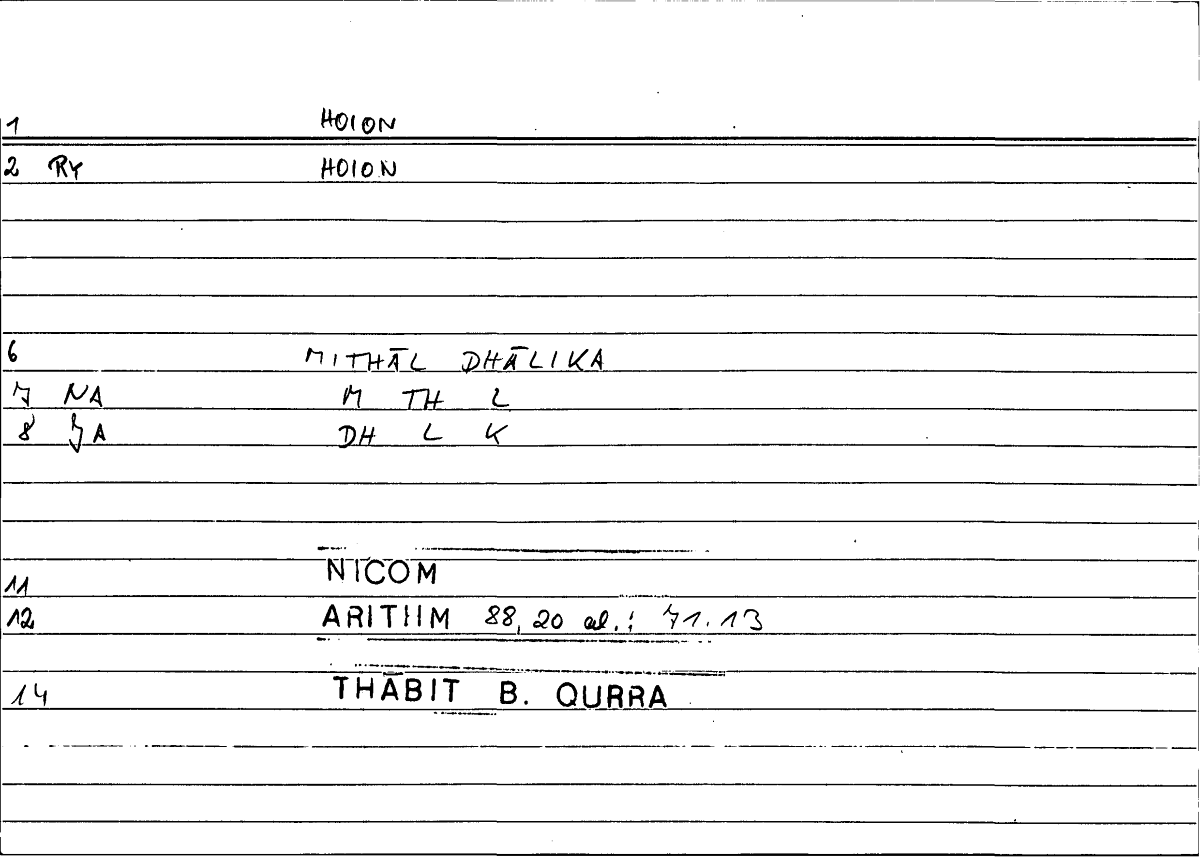 1 HOION
2 RY HOION
6 MITHĀL DHĀLIKA
7 NA M TH L
8 JA DH L K
11 NICOM
12 ARITHM 88, 20 al.; 71.13
14 THĀBIT B. QURRA